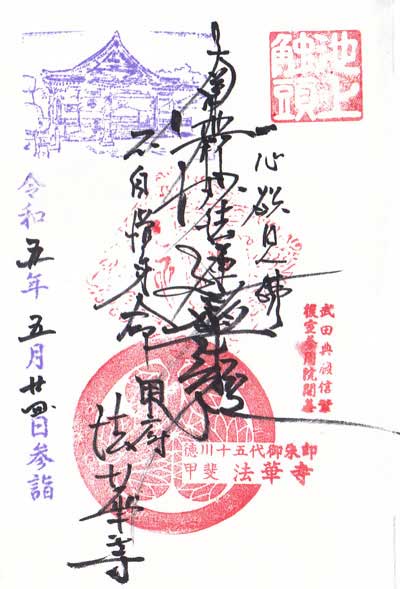 池上
触頭
一心欲見佛
南無妙法蓮華経
不自惜身命
甲府
法華寺
武田典厩信繁
徳川十五代御朱印
甲斐 法華寺
令和五年五月廿四日参詣